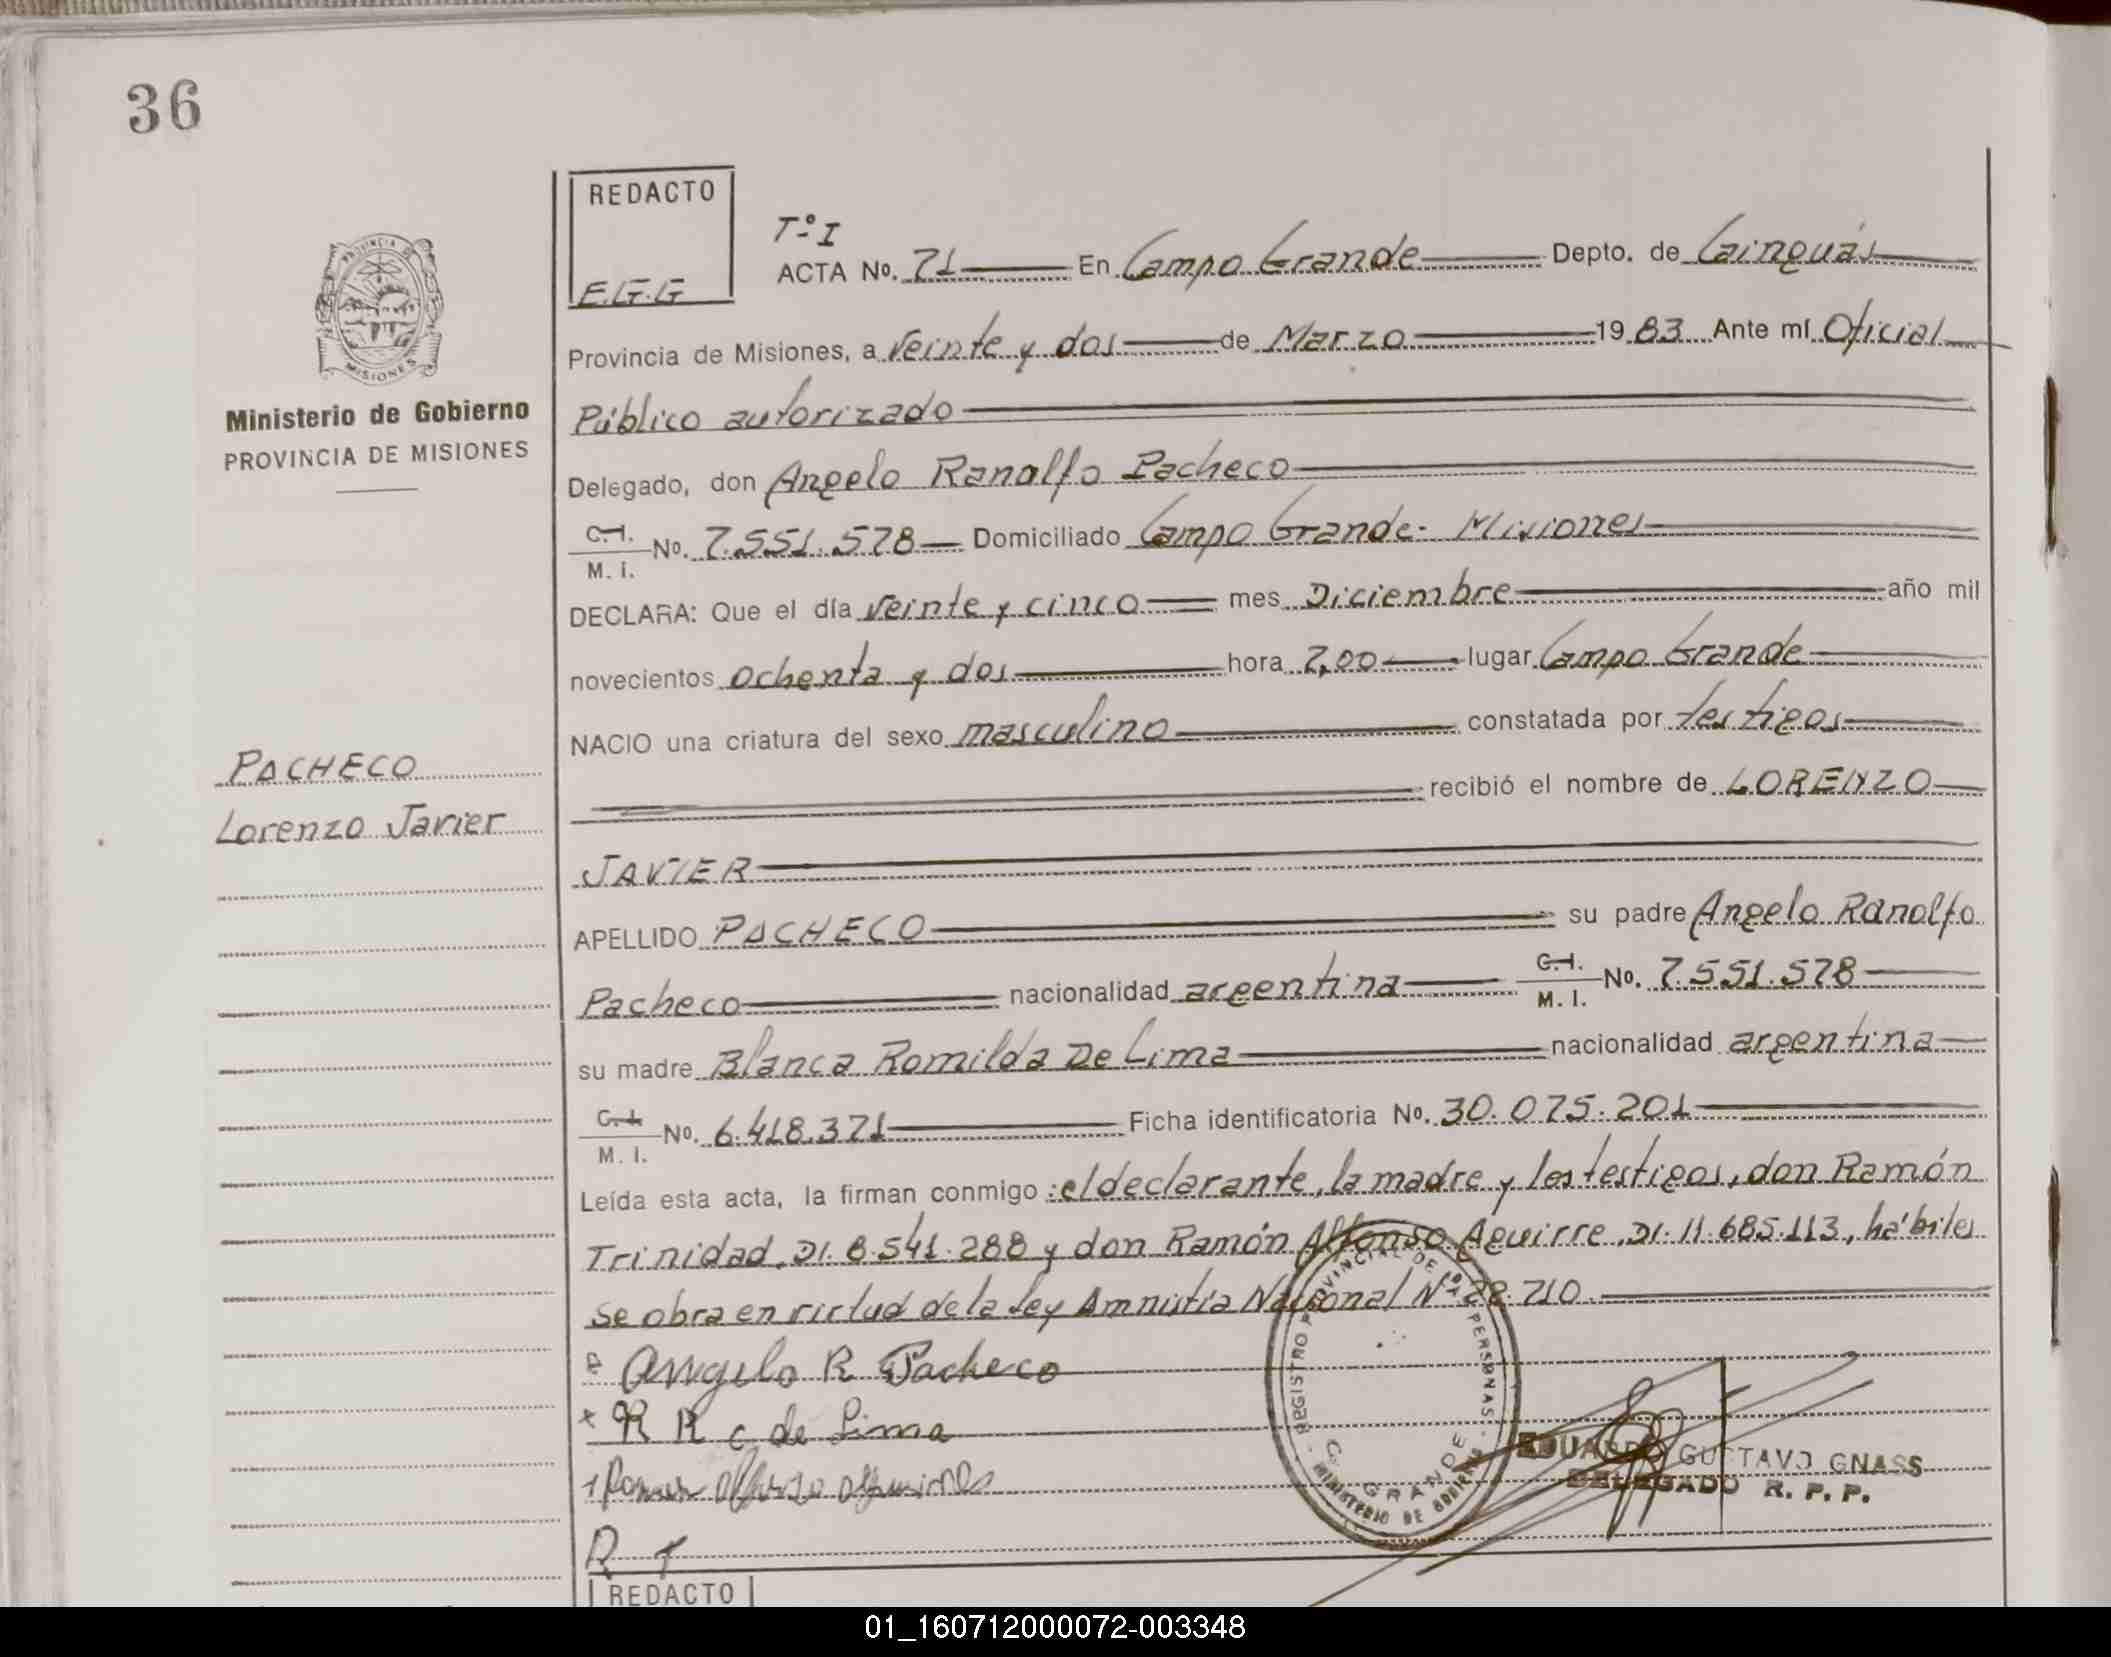 36
REDACTO
E.G.G
Tº I
ACTA No. 71 En Campo Grande Depto. de Cainguás
Provincia de Misiones, a veinte y dos de Marzo 19 83 Ante mí Oficial
Público autorizado
Delegado, don Angelo Ranolfo Pacheco
C.I.
M. I. No. 7.551.578 Domiciliado Campo Grande - Misiones
DECLARA: Que el día veinte y cinco mes Diciembre año mil
novecientos ochenta y dos hora 7,00 lugar Campo Grande
NACIO una criatura del sexo masculino constatada por testigos
recibió el nombre de LORENZO
JAVIER
APELLIDO PACHECO su padre Angelo Ranolfo
Pacheco nacionalidad argentina C.I. M. I. No. 7.551.578
su madre Blanca Romilda De Lima nacionalidad argentina
C.I.
M. I. No. 6.418.371 Ficha identificatoria No. 30.075.201
Leída esta acta, la firman conmigo: el declarante, la madre y los testigos, don Ramón
Trinidad, DI. 8.541.288 y don Ramón Alfonso Aguirre, DI. 11.685.113, hábiles
Se obra en virtud de la Ley Amnistía Nacional Nº 22.710.
Angelo R Pacheco
R R c de Lima
R T
PROVINCIA DE
MISIONES
Ministerio de Gobierno
PROVINCIA DE MISIONES
PACHECO
Lorenzo Javier
REGISTRO PROVINCIAL DE LAS PERSONAS
MINISTERIO DE GOBIERNO
C. GRANDE
EDUARDO GUSTAVO GNASS
DELEGADO R. P. P.
REDACTO
01_160712000072-003348